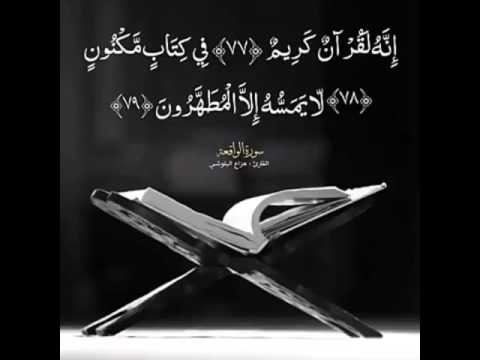 إِنَّهُ لَقُرْآنٌ كَرِيمٌ ﴿٧٧﴾ فِي كِتَابٍ مَّكْنُونٍ
﴿٧٨﴾ لَّا يَمَسُّهُ إِلَّا الْمُطَهَّرُونَ ﴿٧٩﴾
سورة الواقعة
القارئ : هزاع البلوشي